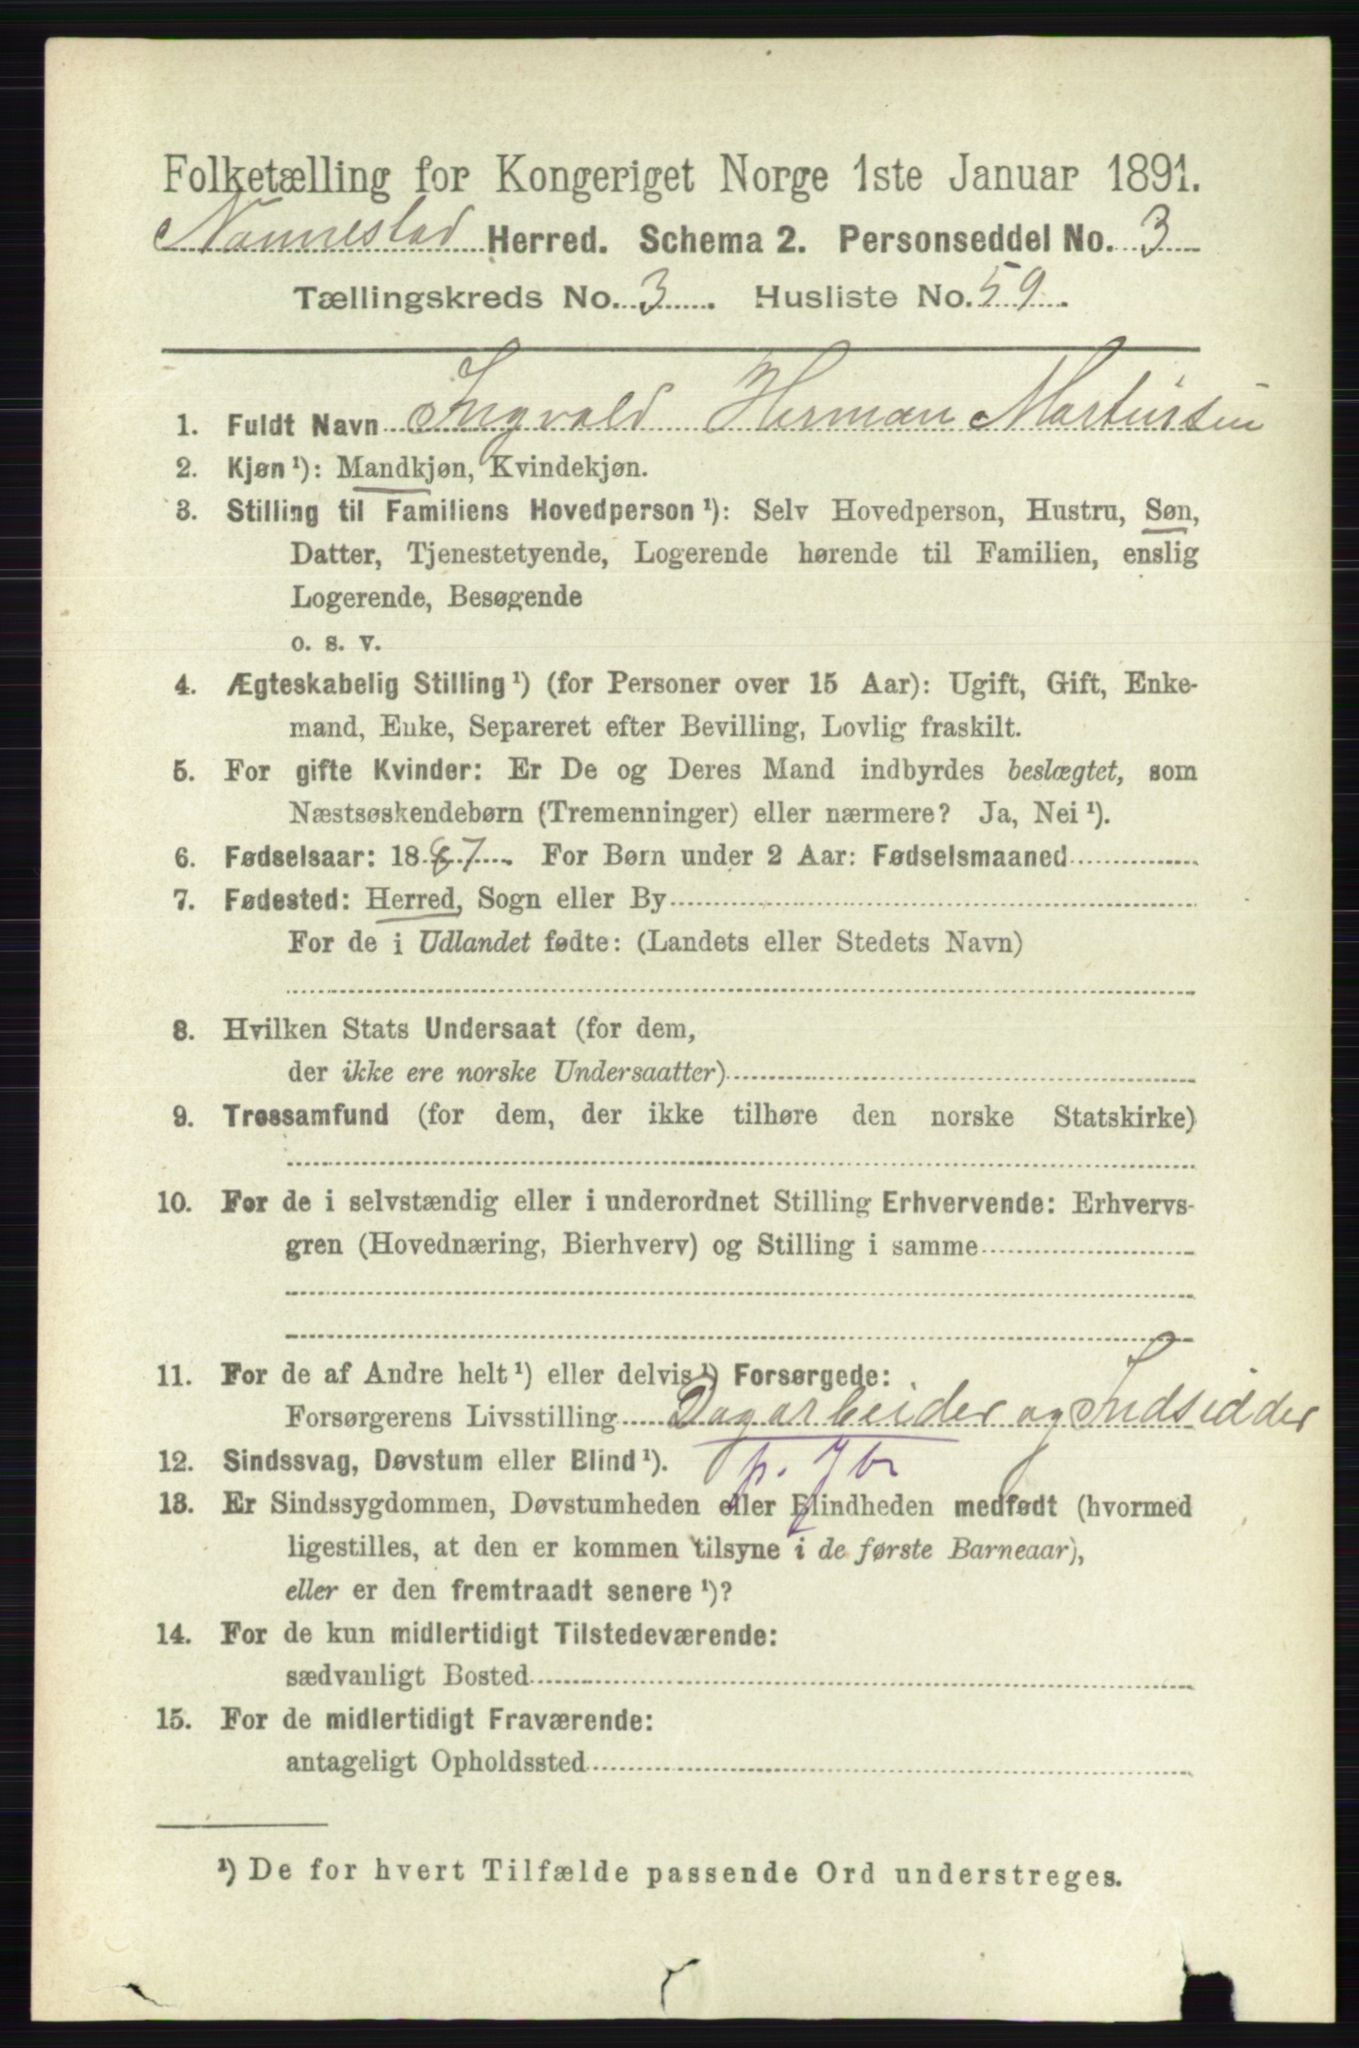 Folketælling for Kongeriget Norge 1ste Januar 1891.
Nannestad Herred. Schema 2. Personseddel No. 3
Tællingskreds No. 3. Husliste No. 59.
1. Fuldt Navn Ingvald Herman Martinsen
2. Kjøn¹): Mandkjøn, Kvindekjøn.
3. Stilling til Familiens Hovedperson¹): Selv Hovedperson, Hustru, Søn,
Datter, Tjenestetyende, Logerende hørende til Familien, enslig
Logerende, Besøgende
o. s. v.
4. Ægteskabelig Stilling¹) (for Personer over 15 Aar): Ugift, Gift, Enke-
mand, Enke, Separeret efter Bevilling, Lovlig fraskilt.
5. For gifte Kvinder: Er De og Deres Mand indbyrdes beslægtet, som
Næstsøskendebørn (Tremenninger) eller nærmere? Ja, Nei¹).
6. Fødselsaar: 1887. For Børn under 2 Aar: Fødselsmaaned
7. Fødested: Herred, Sogn eller By
For de i Udlandet fødte: (Landets eller Stedets Navn)
8. Hvilken Stats Undersaat (for dem,
der ikke ere norske Undersaatter)
9. Trossamfund (for dem, der ikke tilhøre den norske Statskirke)
10. For de i selvstændig eller i underordnet Stilling Erhvervende: Erhvervs-
gren (Hovednæring, Bierhverv) og Stilling i samme
11. For de af Andre helt¹) eller delvis¹) Forsørgede:
Forsørgerens Livsstilling Dagarbeider og Indsidder
12. Sindssvag, Døvstum eller Blind¹).
13. Er Sindssygdommen, Døvstumheden eller Blindheden medfødt (hvormed
ligestilles, at den er kommen tilsyne i de første Barneaar),
eller er den fremtraadt senere¹)?
14. For de kun midlertidigt Tilstedeværende:
sædvanligt Bosted
15. For de midlertidigt Fraværende:
antageligt Opholdssted
¹) De for hvert Tilfælde passende Ord understreges.